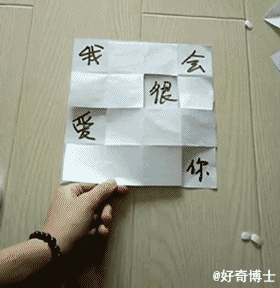 我 会
很
爱
你
@好奇博士